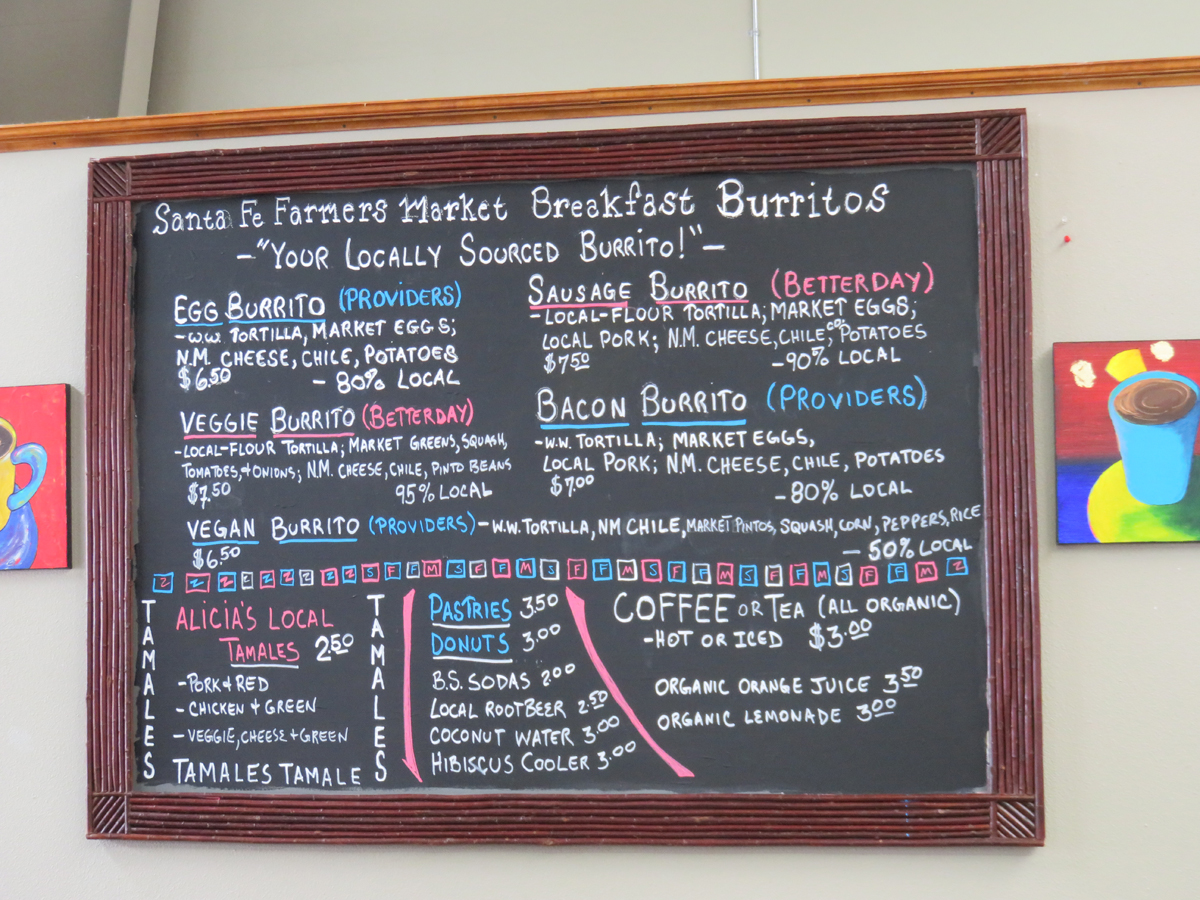 Santa Fe Farmers Market Breakfast Burritos
-"YOUR LOCALLY SOURCED BURRITO!"-
EGG BURRITO (PROVIDERS)
-W.W. TORTILLA, MARKET EGGS;
N.M. CHEESE, CHILE, POTATOES
$6.50 - 80% LOCAL
VEGGIE BURRITO (BETTERDAY)
-LOCAL-FLOUR TORTILLA; MARKET GREENS, SQUASH,
TOMATOES, + ONIONS; N.M. CHEESE, CHILE, PINTO BEANS
$7.50 95% LOCAL
SAUSAGE BURRITO (BETTERDAY)
-LOCAL-FLOUR TORTILLA; MARKET EGGS;
LOCAL PORK; N.M. CHEESE, CHILE, POTATOES
$7.50 -90% LOCAL
BACON BURRITO (PROVIDERS)
-W.W. TORTILLA; MARKET EGGS,
LOCAL PORK; N.M. CHEESE, CHILE, POTATOES
$7.00 -80% LOCAL
VEGAN BURRITO (PROVIDERS) - W.W. TORTILLA, NM CHILE, MARKET PINTOS, SQUASH, CORN, PEPPERS, RICE
$6.50 - 50% LOCAL
TAMALES
ALICIA'S LOCAL
TAMALES 2.50
-PORK + RED
- CHICKEN + GREEN
- VEGGIE, CHEESE + GREEN
TAMALES TAMALE
TAMALES
PASTRIES 3.50
DONUTS 3.00
B.S. SODAS 2.00
LOCAL ROOTBEER 2.50
COCONUT WATER 3.00
HIBISCUS COOLER 3.00
COFFEE OR TEA (ALL ORGANIC)
-HOT OR ICED $3.00
ORGANIC ORANGE JUICE 3.50
ORGANIC LEMONADE 3.00